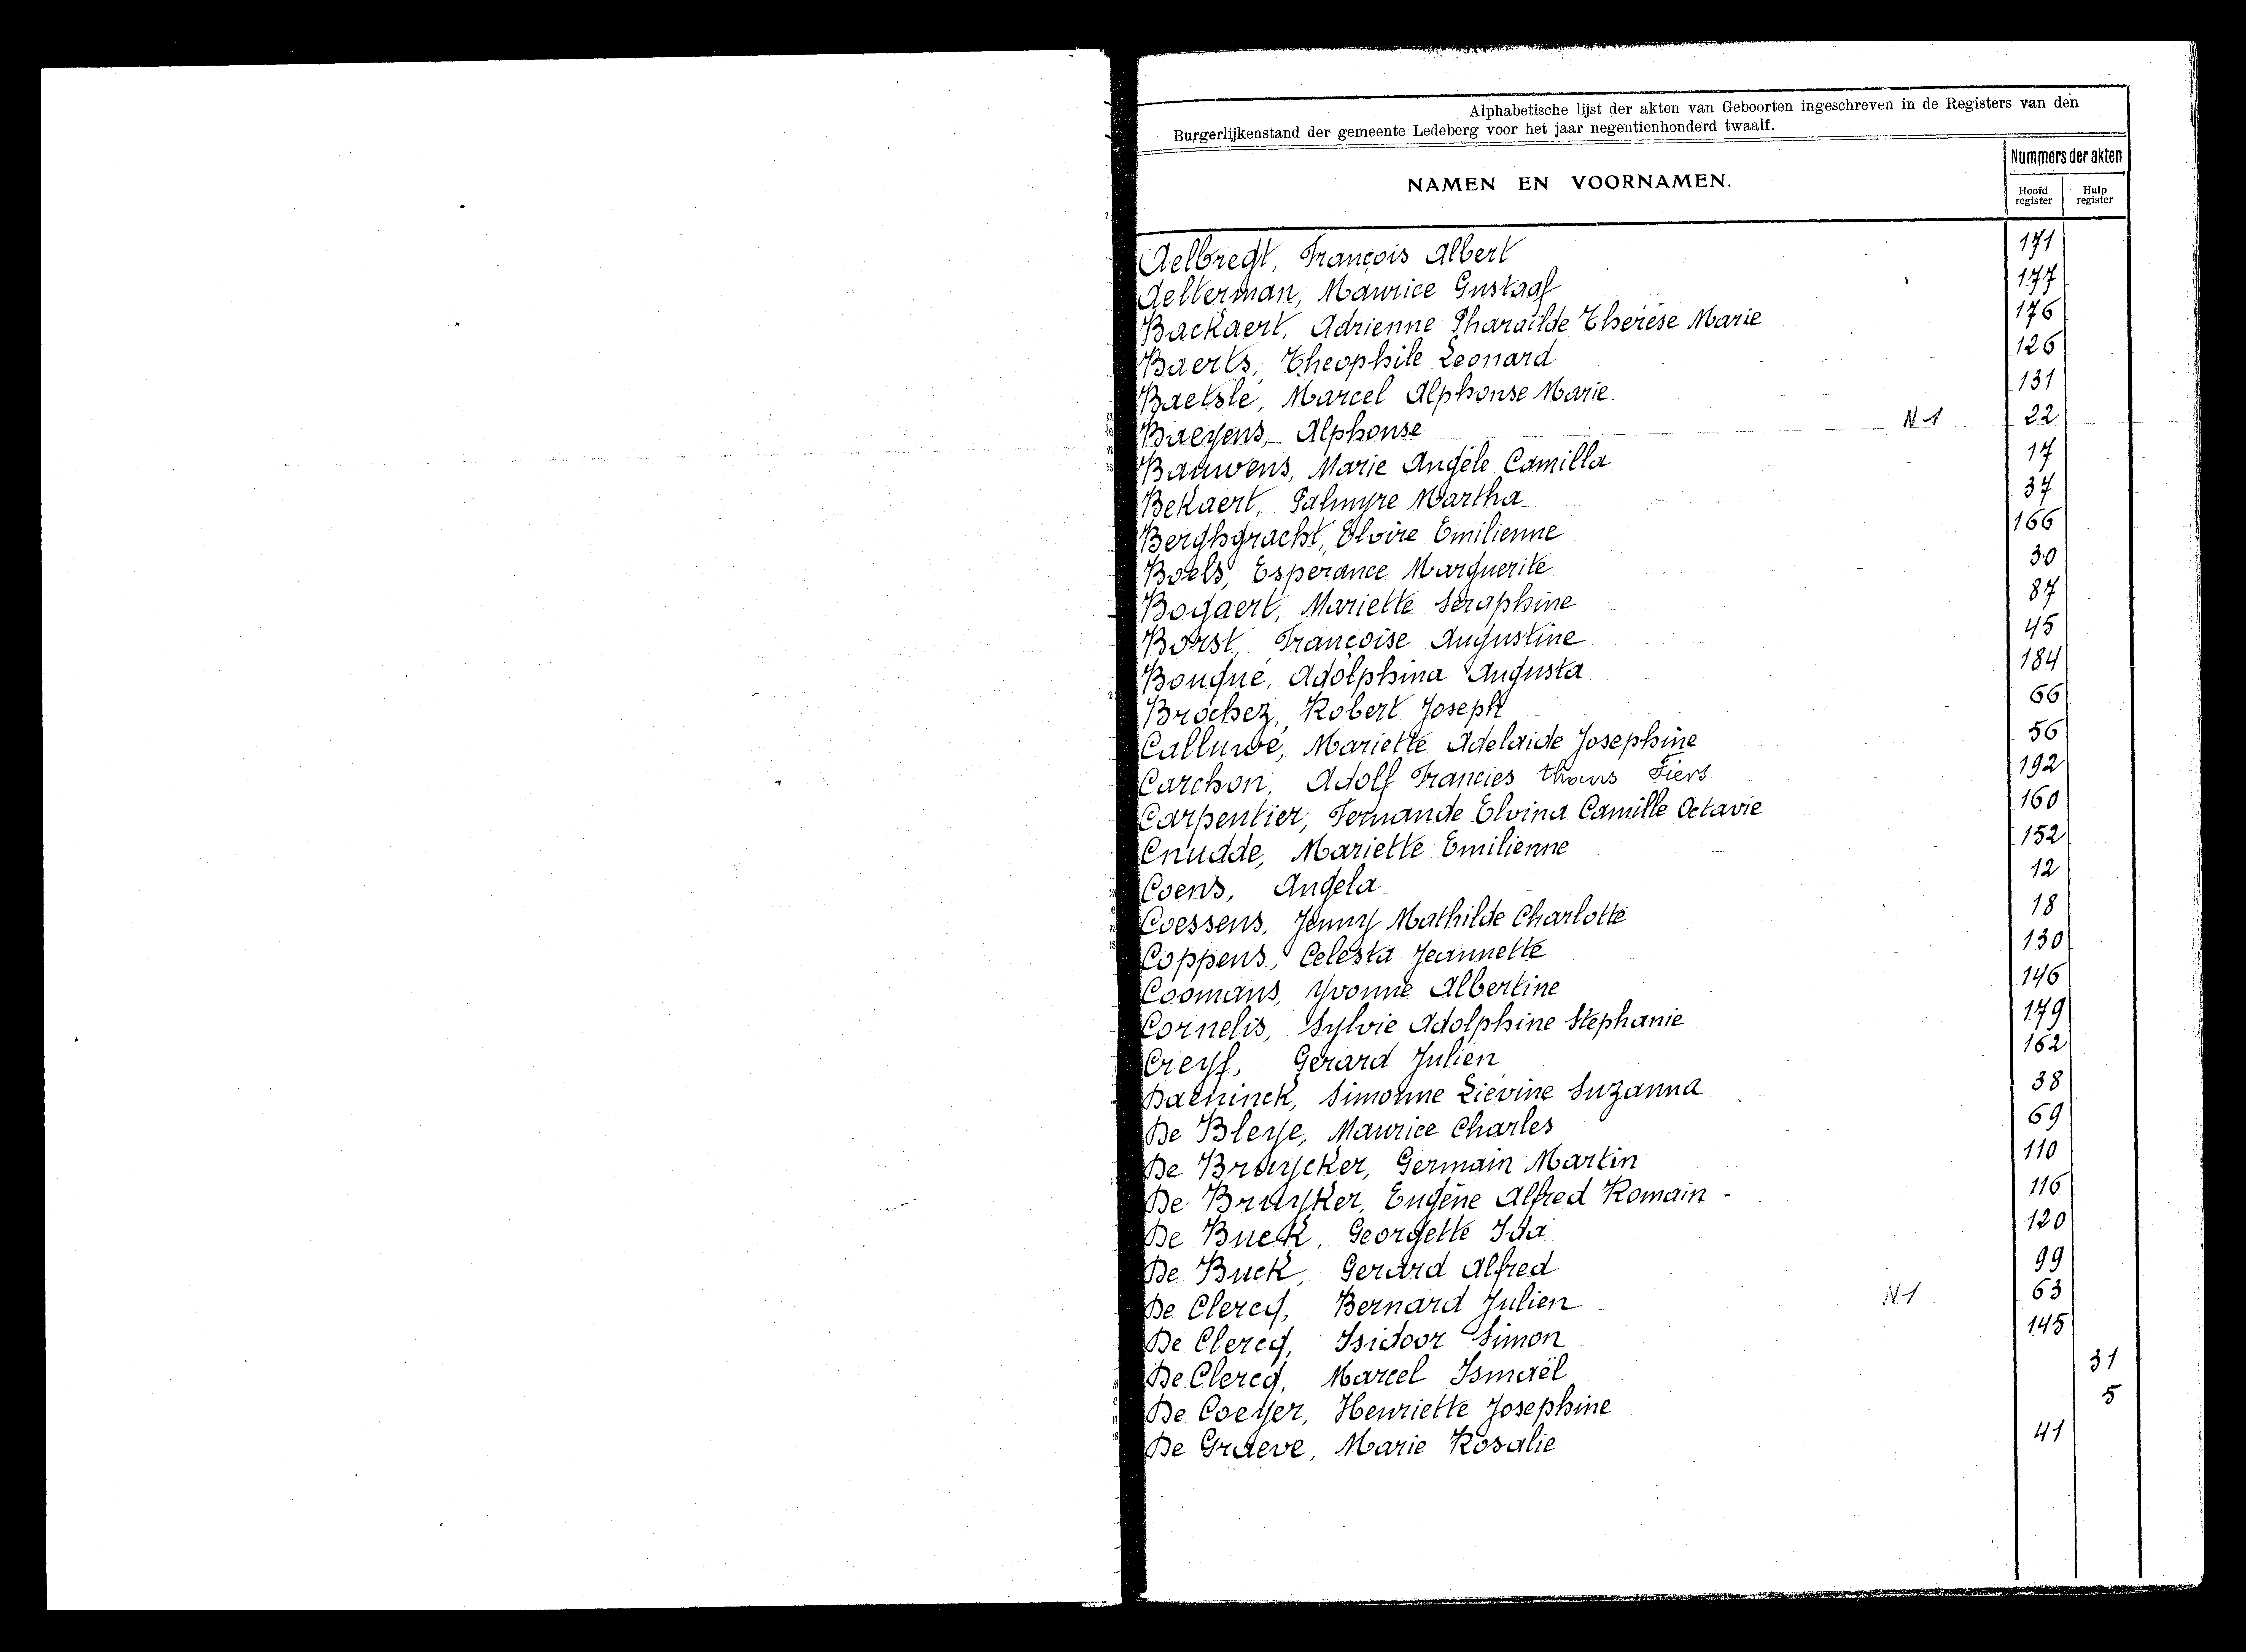 Alphabetische lijst der akten van Geboorten ingeschreven in de Registers van den
Burgerlijkenstand der gemeente Ledeberg voor het jaar negentienhonderd twaalf.
Nummers der akten
NAMEN EN VOORNAMEN.
Hoofd register
Hulp register
Aelbregt, François Albert 171
Aelterman, Maurice Gustaaf 177
Backaert, Adrienne Pharaïlde Therèse Marie 176
Baerts, Theophile Leonard 126
Baetslé, Marcel Alphonse Marie. 131
Baeyens, Alphonse N1 22
Bauwens, Marie Angèle Camilla 17
Bekaert, Palmyre Martha 37
Berghgracht, Elvire Emilienne 166
Boels, Esperance Marguerite 30
Bogaert, Mariette Seraphine 87
Borst, Françoise Augustine 45
Bouqué, Adolphina Augusta 184
Brochez, Robert Joseph 66
Calluwé, Mariette Adelaide Josephine 56
Carchon, Adolf Francies thans Fiers 192
Carpentier, Fernande Elvina Camille Octavie 160
Cnudde, Mariette Emilienne 152
Coens, Angela 12
Coessens, Jenny Mathilde Charlotte 18
Coppens, Celesta Jeannette 130
Coomans, Yvonne Albertine 146
Cornelis, Sylvie Adolphine Stephanie 179
Creyf, Gerard Julien 162
Daeninck, Simonne Lievine Suzanna 38
De Bleye, Maurice Charles 69
De Bruycker, Germain Martin 110
De Bruyker, Eugène Alfred Romain - 116
De Buck, Georgette Ida 120
De Buck, Gerard Alfred 99
De Clercq, Bernard Julien N1 63
De Clercq, Isidoor Simon 145
De Clercq, Marcel Ismaël 31
De Coeyer, Henriette Josephine 5
De Graeve, Marie Rosalie 41